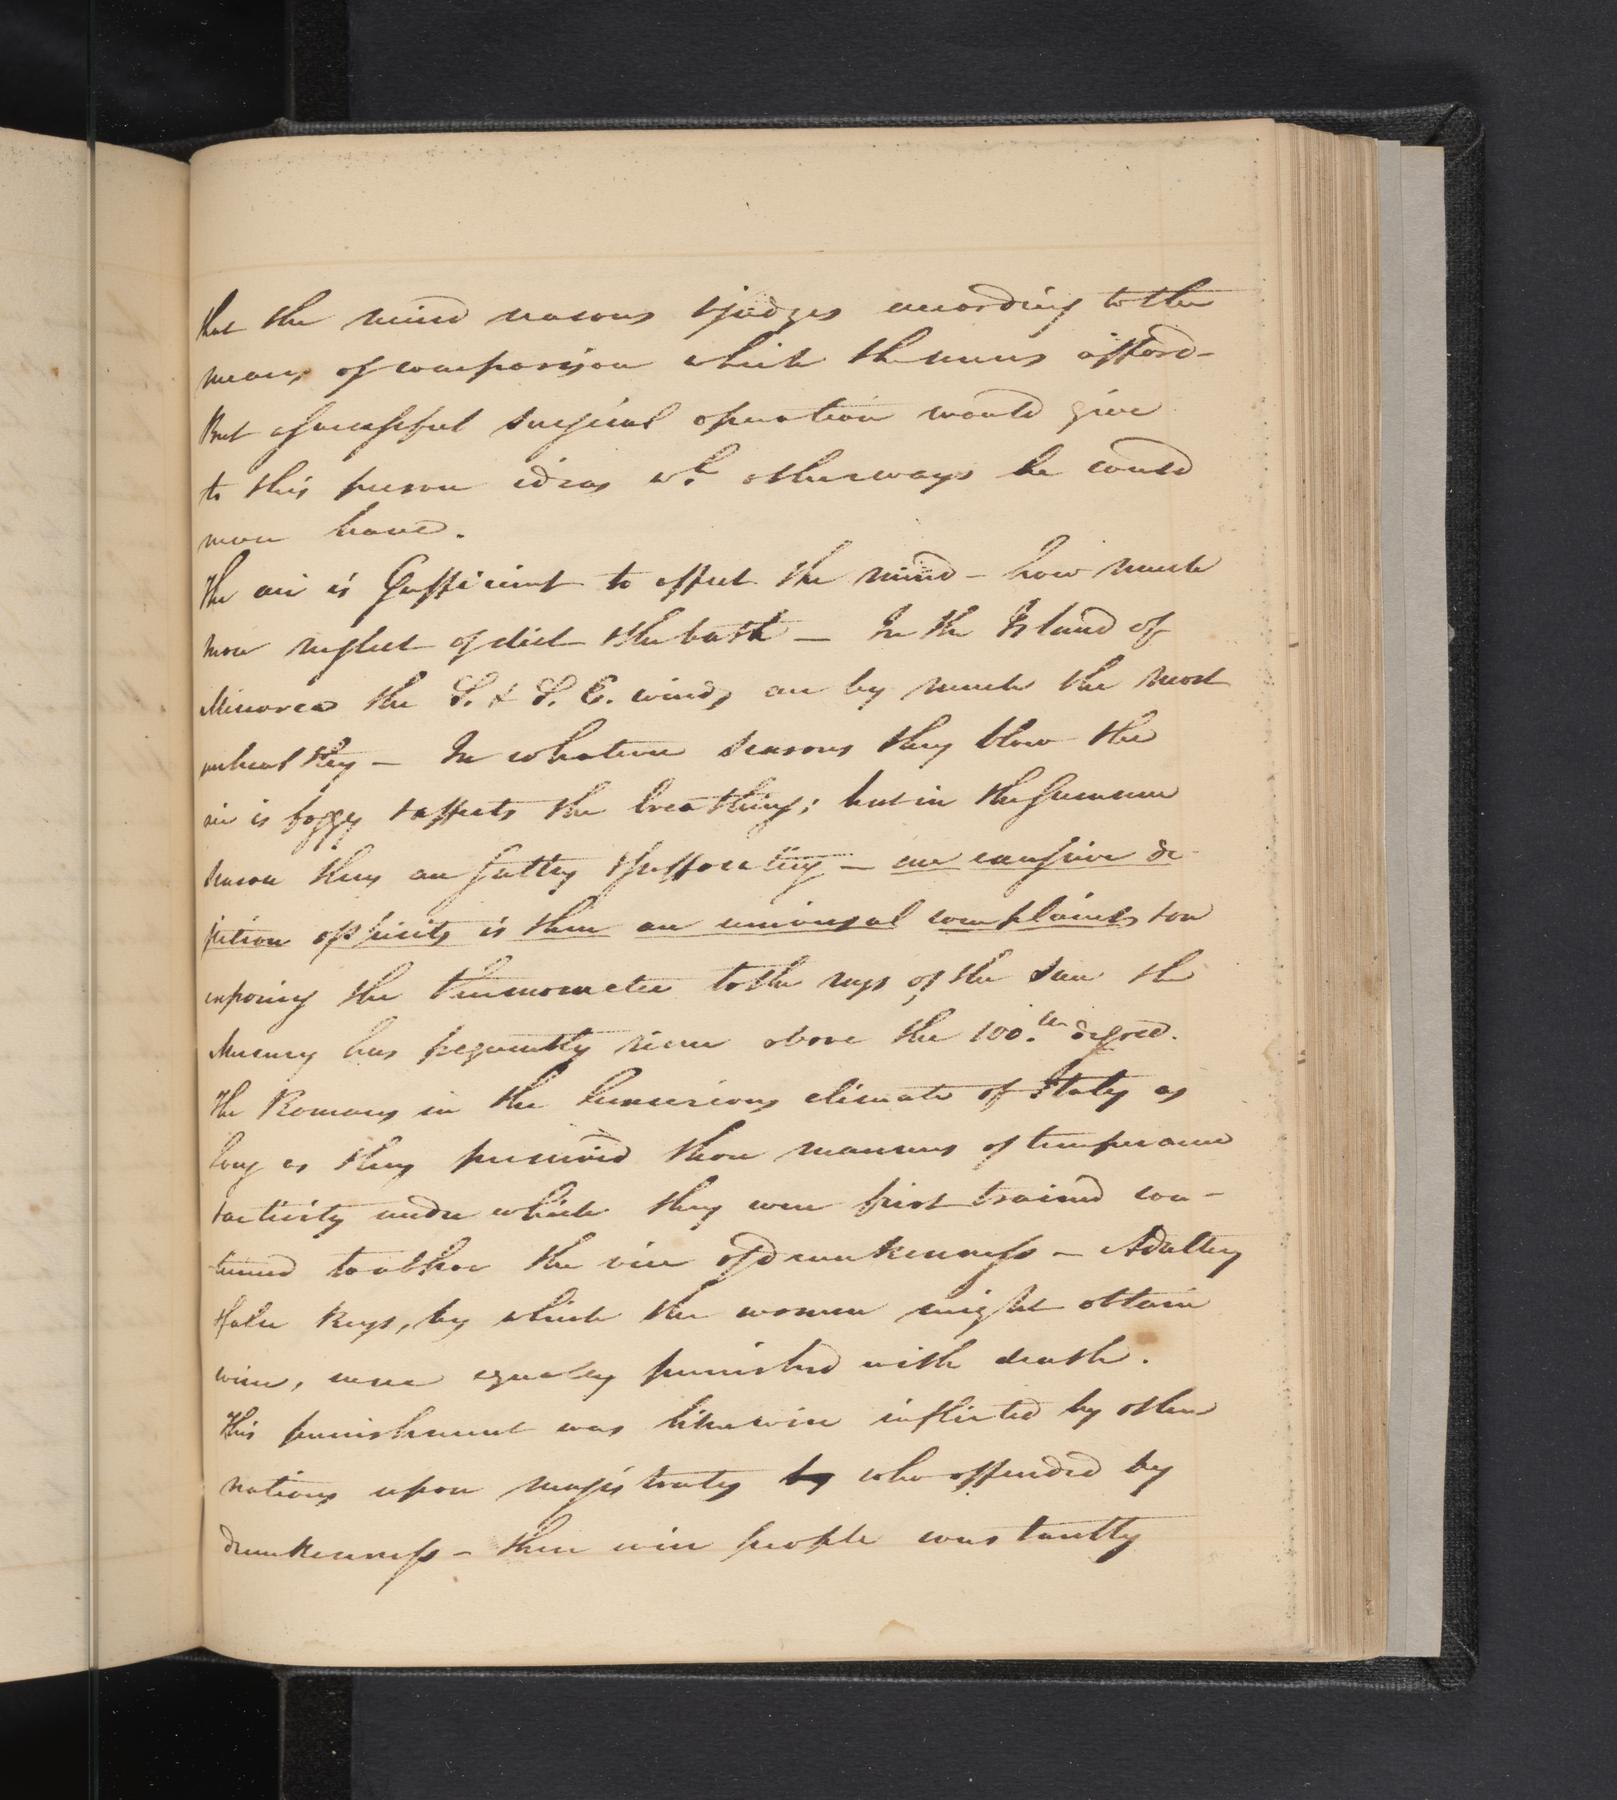 that the mind reasons & judges according to the
means of comparison which the senses afford -
But a successful surgical operation would give
to this person ideas wh. otherways he could
never have.
The air is sufficient to affect the mind - how much
more neglect of diet & the bath - In the Island of
Minorca the S. & S. E. winds are by much the most
unhealthy - In whatever seasons they blow the
air is foggy & affects the breathing; but in the summer
season they are sultry & suffocating - an excessive de-
jection of spirits is then an universal complaint, & on
exposing the thermometer to the rays of the sun the
Mercury has frequently risen above the 100.th degree.
The Romans in the luxurious climate of Italy as
long as they preserved those manners of temperance
& activity under which they were first trained con-
tinued to abhor the vice of drunkenness - Adultery
& false keys, by which the women might obtain
wine, were equaley punished with death.
This punishment was likewise inflicted by other
nations upon magistrates by who offended by
drunkenness - these wise people constantly